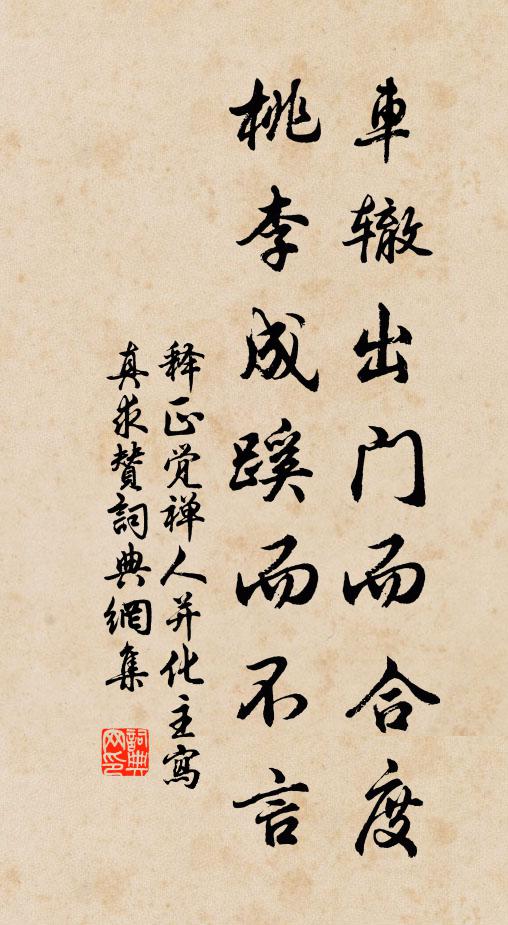 車辙出门而合度
桃李成蹊而不言
释正觉禅人并化主寫
真求赞詞典網集
詞典网印